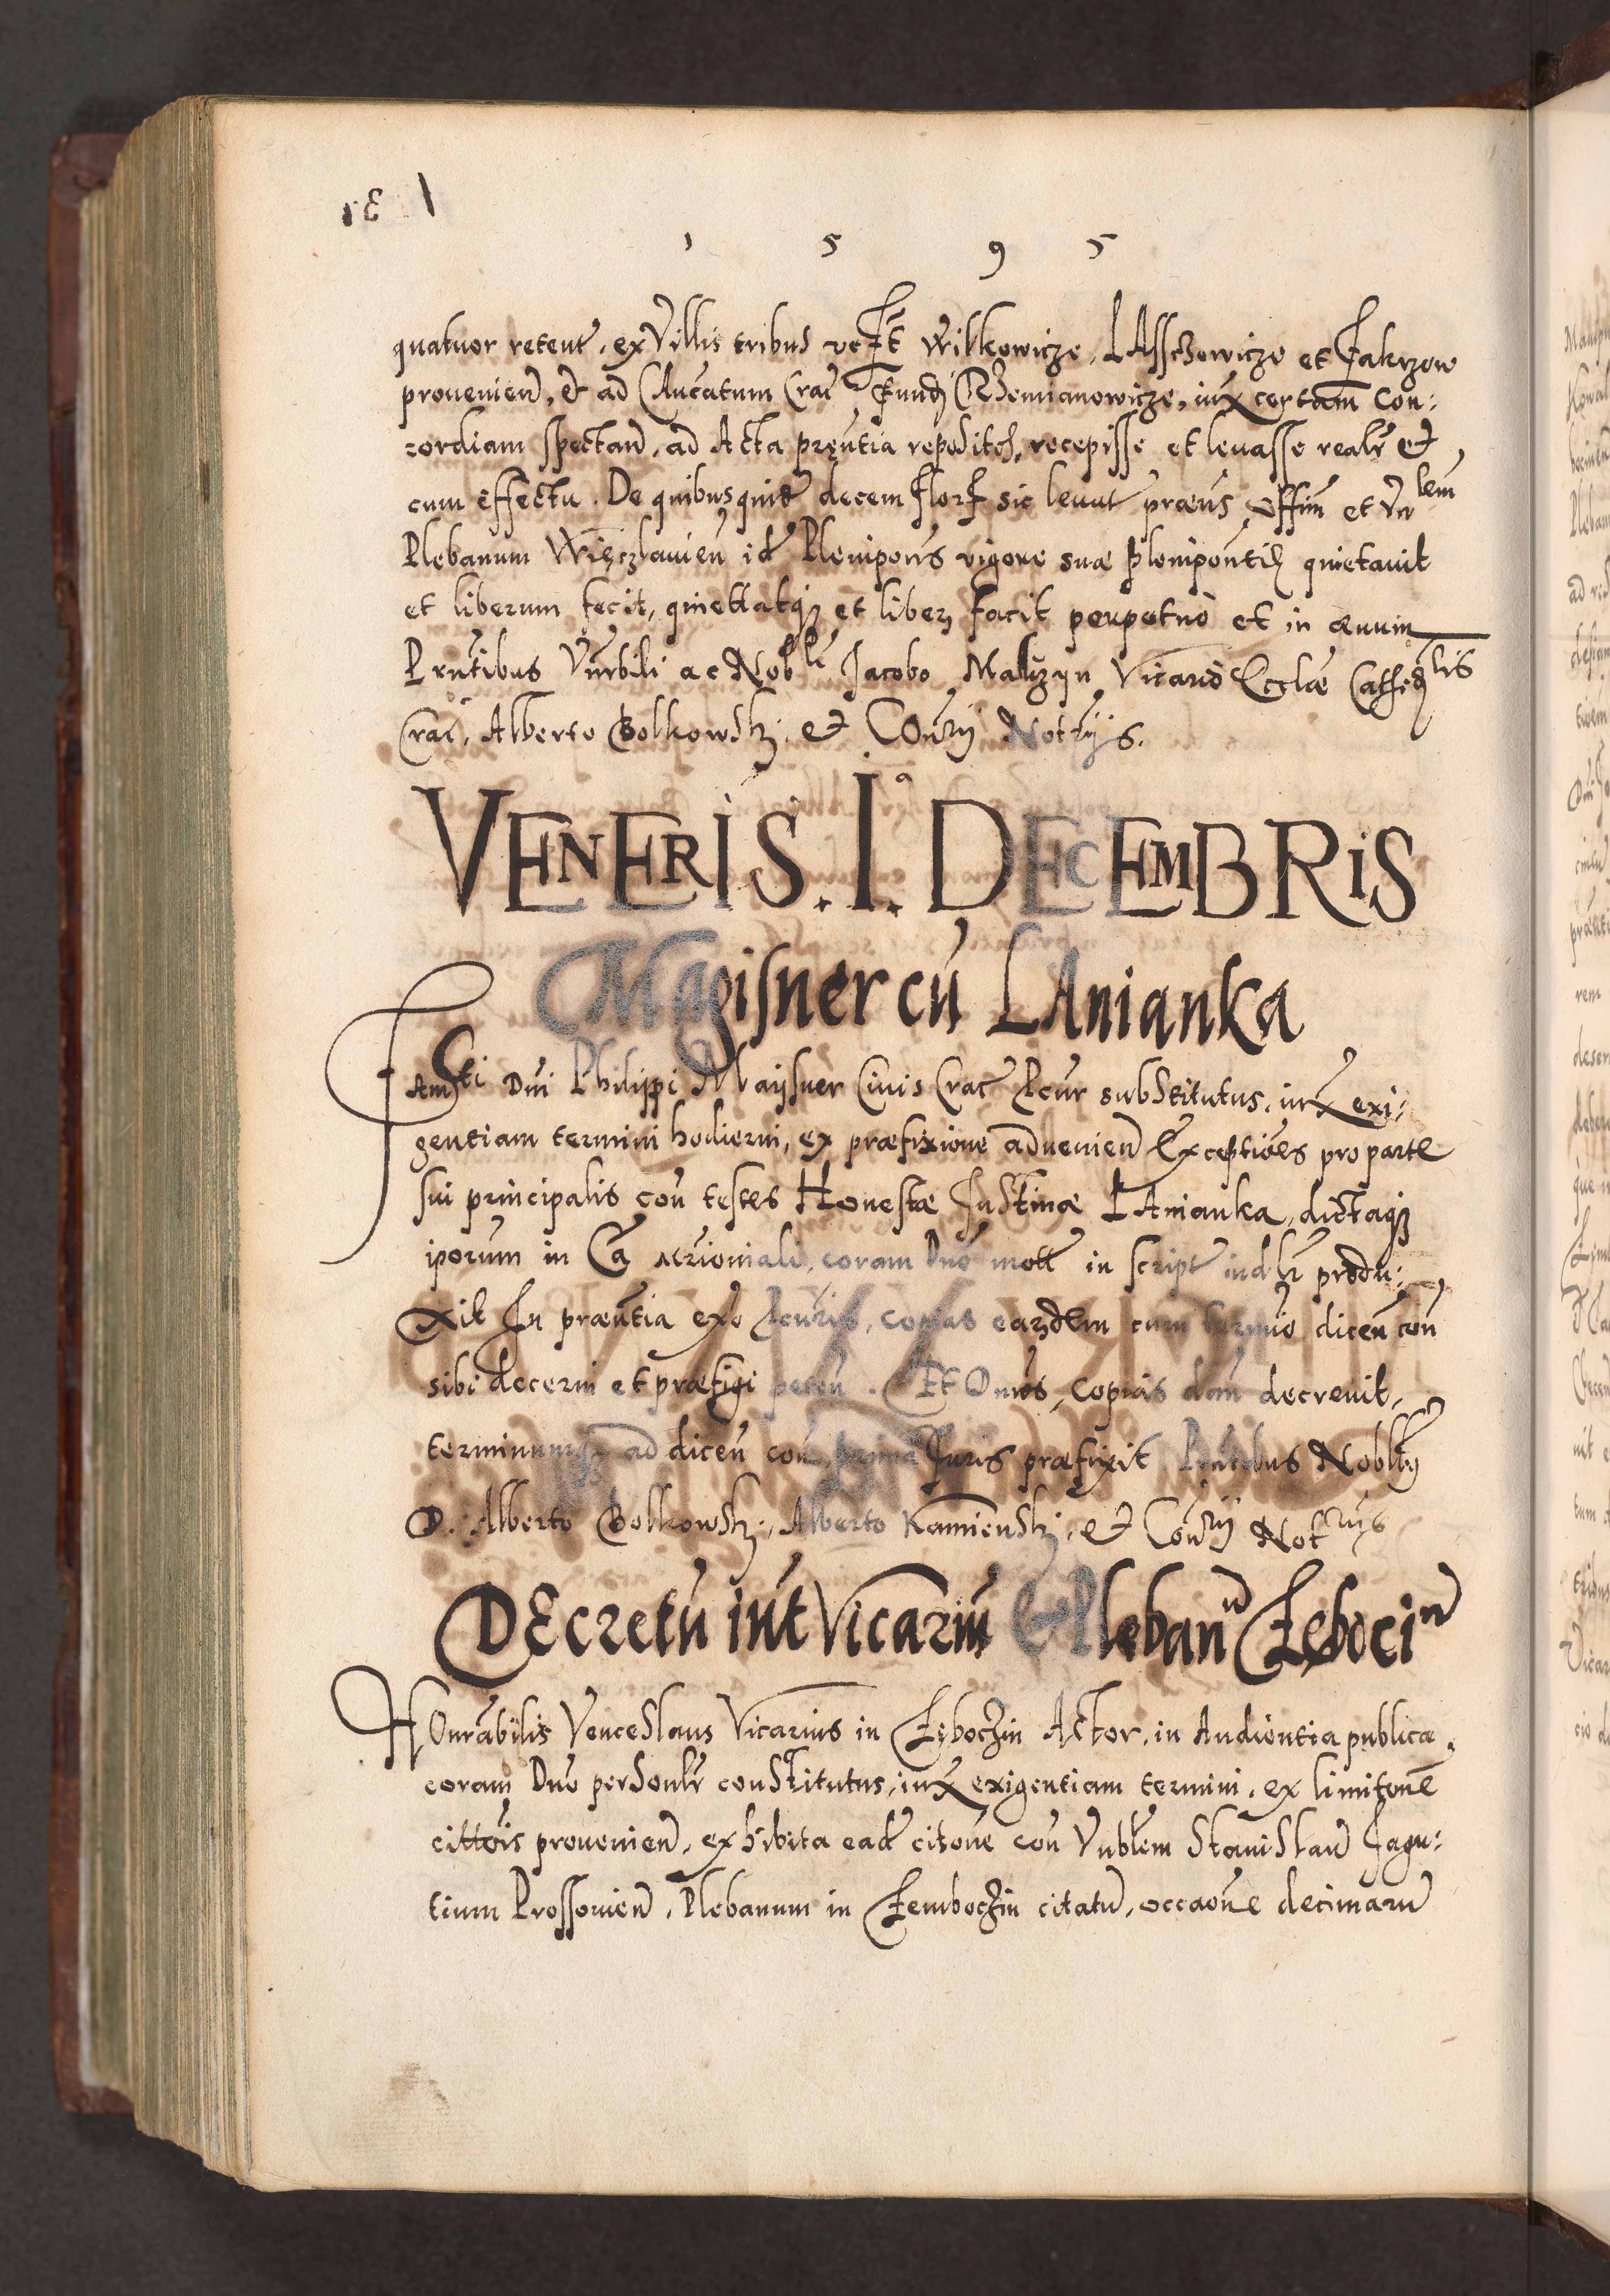 1 5 9 5
quatuor retent, ex Villis tribus Wilkowicze, LAsschowicze et Zakrzow
provenien, et ad Aucatum Crac fundi Siemianowicze, iux certam con:
cordiam spectan, ad Acta pręntia repositā, recepisse et levasse realr et
cum effectu. De quibus quidē decem flor sic levat præns Offim et Vn lem
Plebanum Więczlavien idē Plenipons vigore suæ plenipontiæ quietavit
et liberum fecit, quiettatqz et liberū facit perpetuò et in ævum
Prntibus Vnrbili ac Nobli Jacobo Malizyn Vicario Ecclæ Cathedlis
Crac, Alberto Golkowski, et Conrij Notrijs.
VENERIS . I.ª DECEMBRIS
Magisner cū LAnianka
FAmti Dni Philippi Mayisner Civis Crac Pcur substitutus, iux exi:
gentiam termini hodierni, ex præfixione advenien Exceptiões pro parte
sui principalis con testes Honestæ Justinæ LAnianka, dictaqz
iporum in Ca coram Dno in script produ:
xit In præntia exō Pcuris, copias earzdem cum termio dicen con
sibi decerni et præfigi peten. Et Dnus, copias dan decrevit,
terminumqz ad dicen con, prima Juris præfixit Prntibus Nobl
D. Alberto Golkowski, Alberto Kamienski, et Conrij Notrijs
DEcretū int Vicariū Et Pleban Zębocin
HOnrabilis Venceslaus Vicarius in Zęboczin Actor, in Audientia publica
coram Dno personlr constitutus, iux exigentiam termini, ex limitone
cittois provenien, exhibita eadē citone con Vnblem Stanislaū Jagu:
tium Prossovien, Plebanum in Zemboczin citatū, occaone decimarū